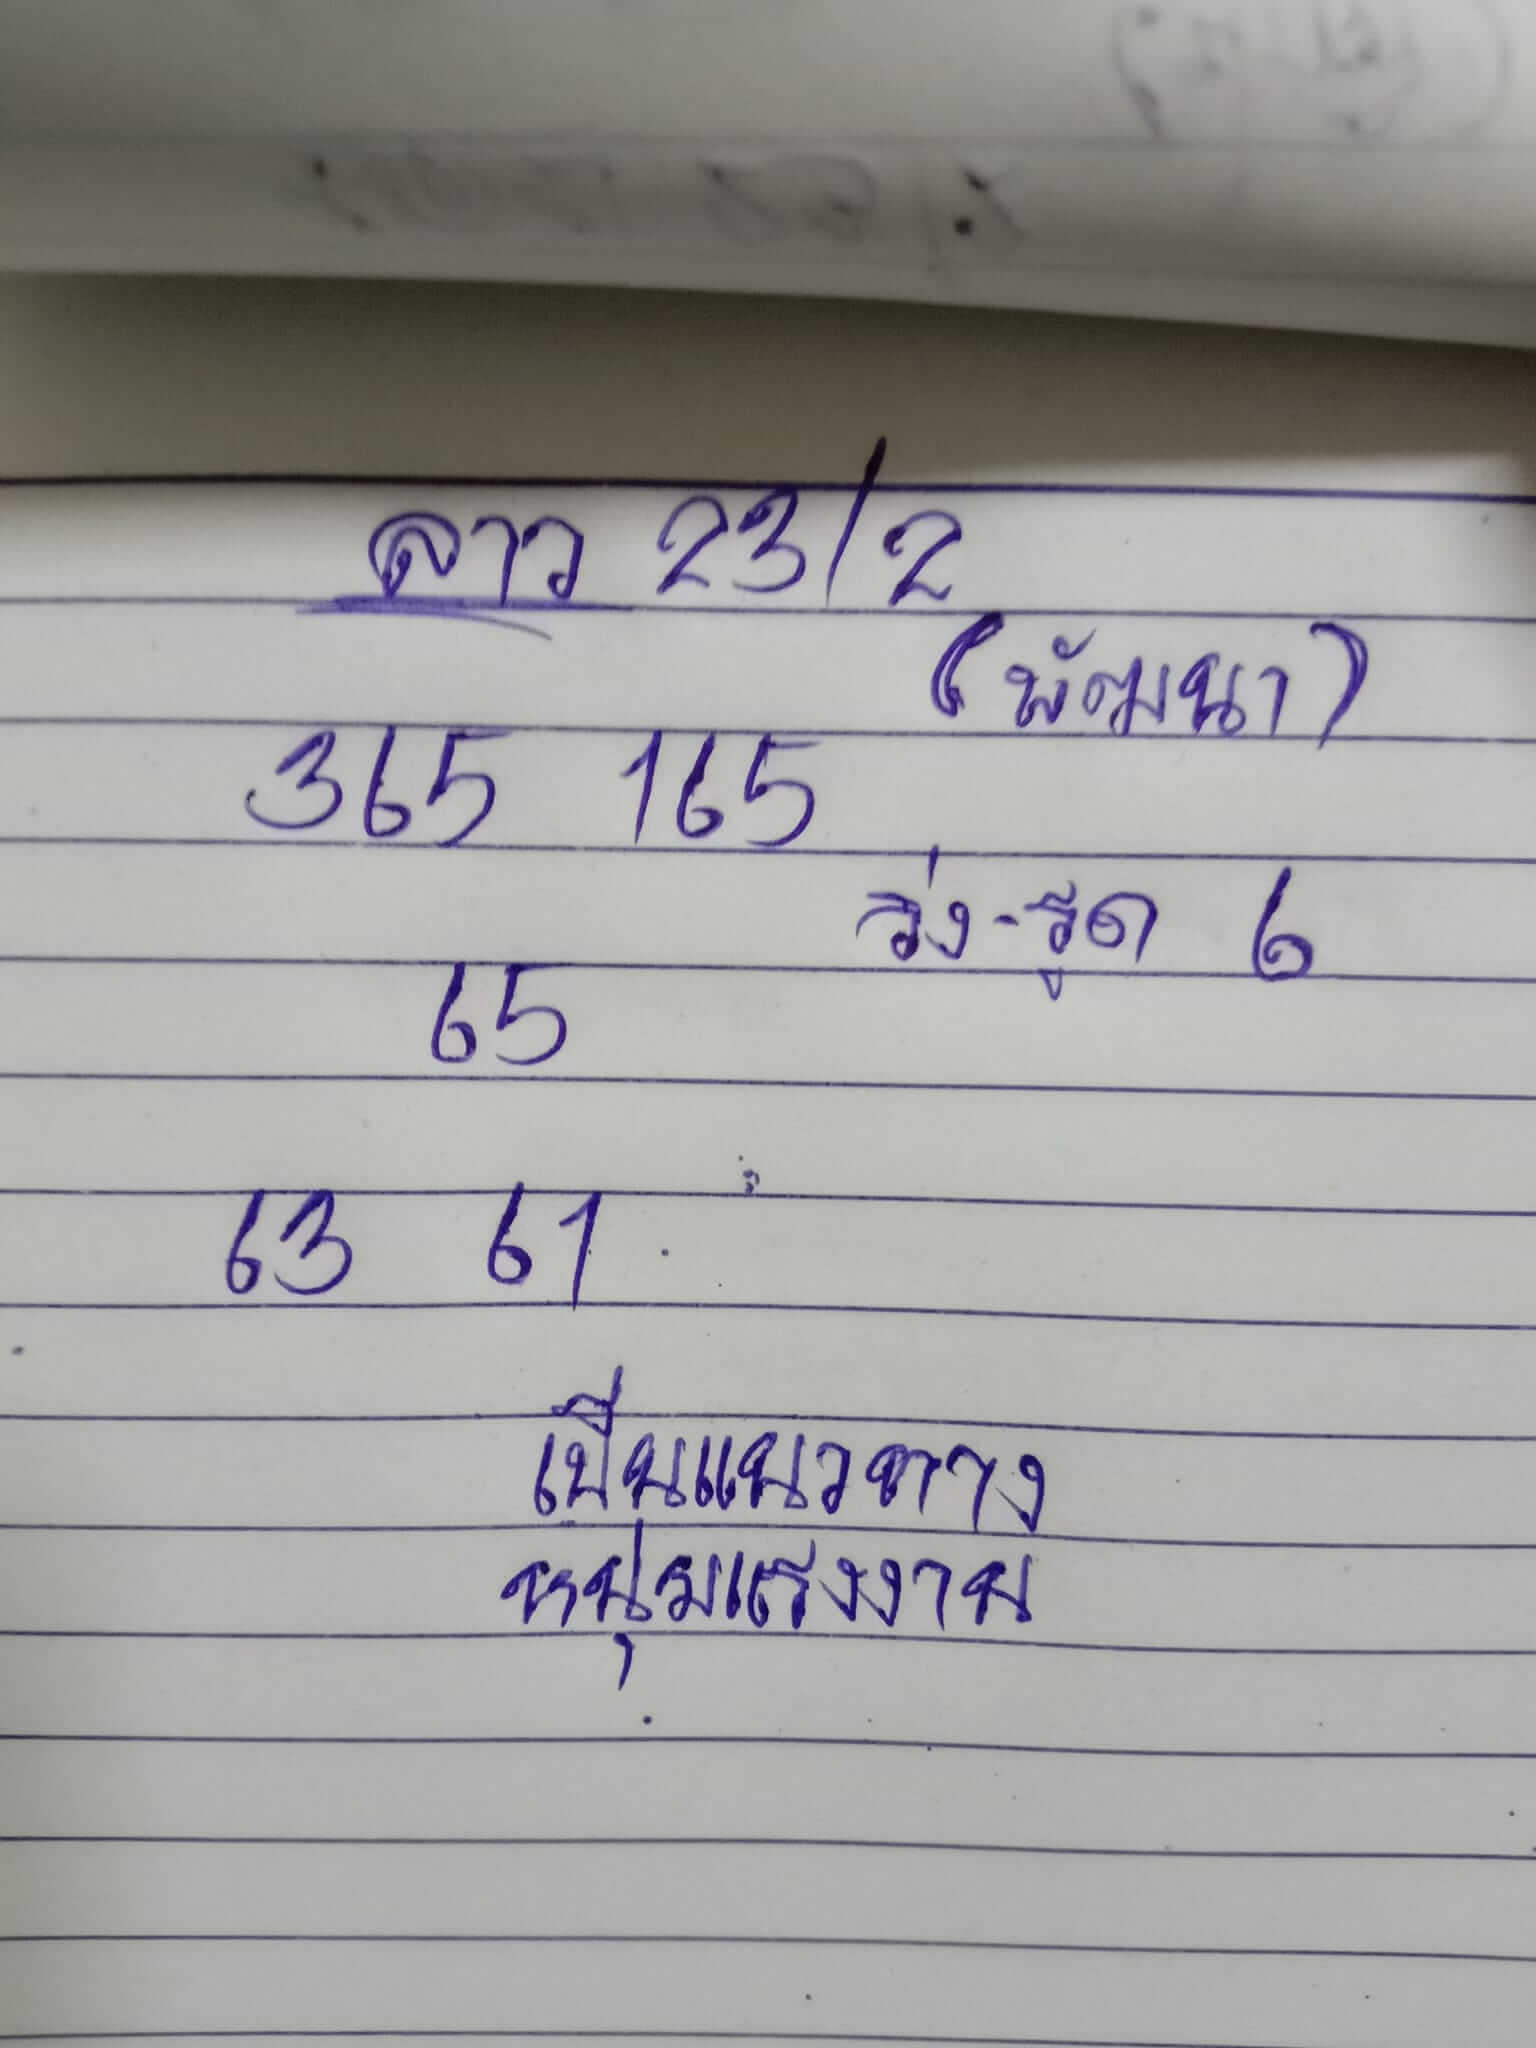 ลาว 23/2
(พัฒนา)
365 165
วิ่ง-รูด 6
65
63 61
เป็นแนวทาง
หนุ่มแรงงาน